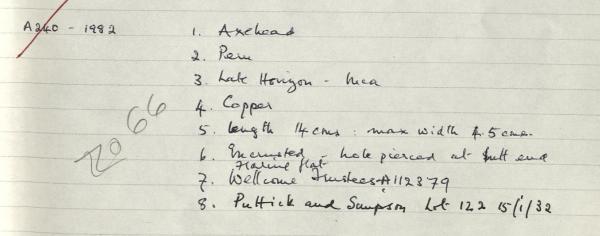 A240 - 1982
1. Axehead
2. Peru
3. Late Horizon - Inca
4. Copper
5. Length 14 cms : max width 4.5 cms.
6. Encrusted - hole pierced at butt end
flat
7. Wellcome Trustees A112379
8. Puttick and Simpson Lot 122 15/1/32
2066